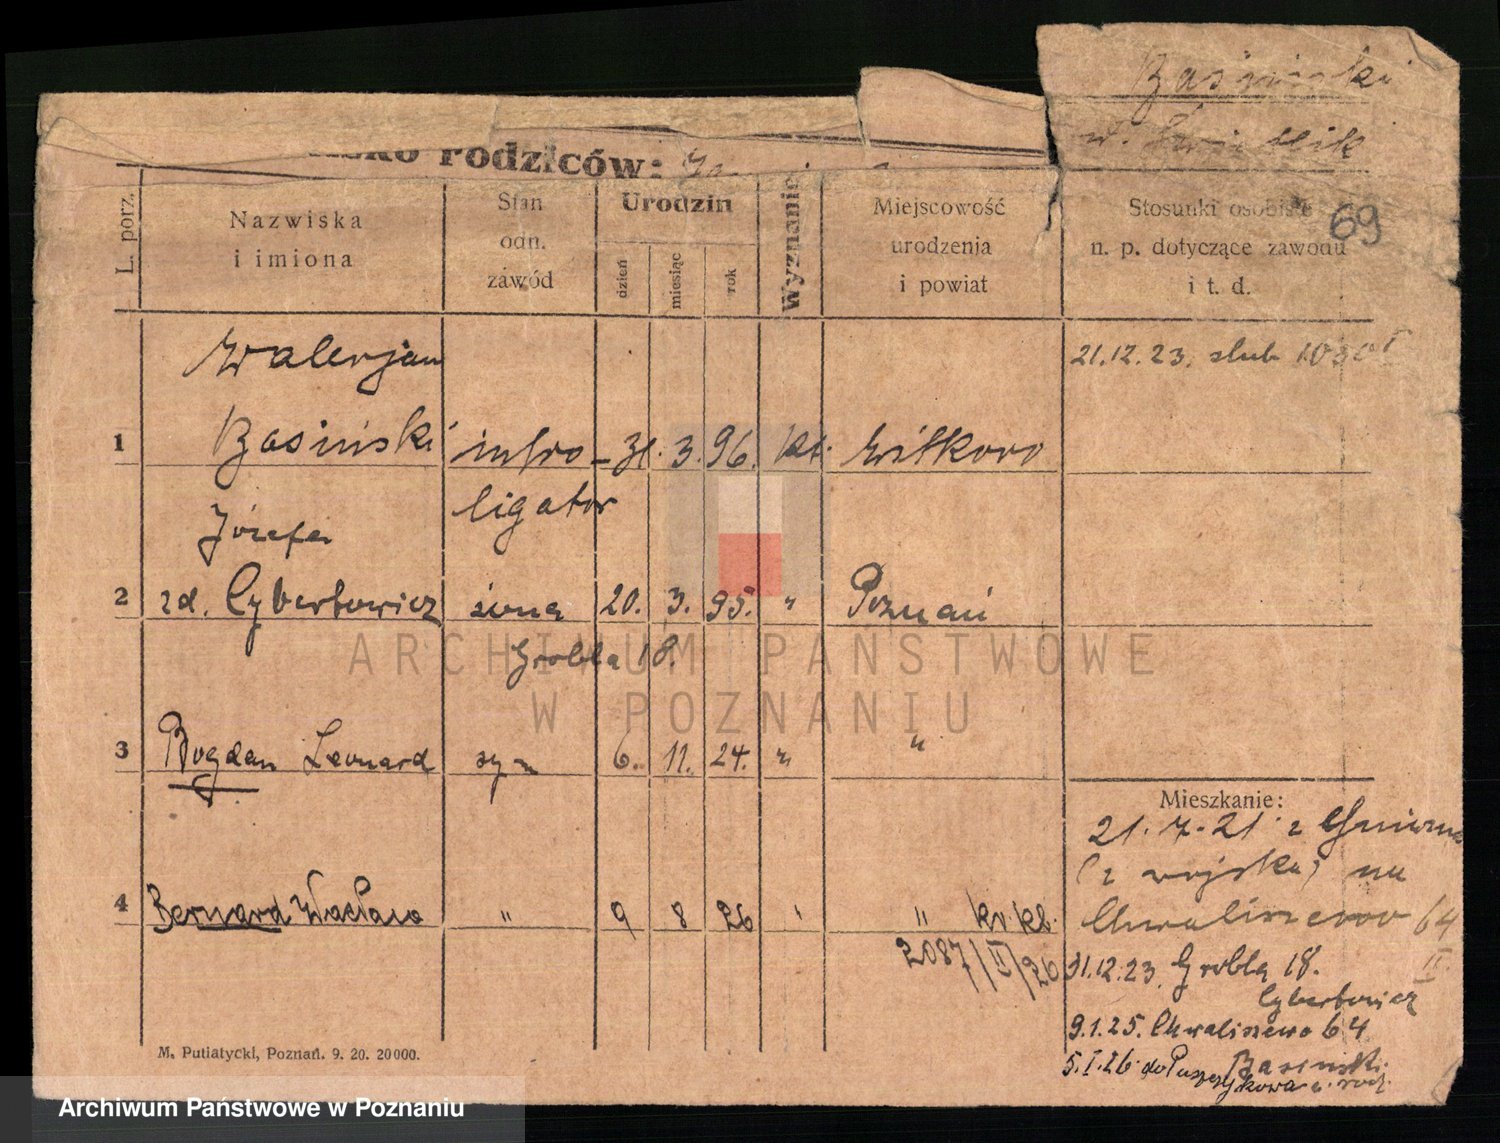 Basiński
rodziców:
L. porz.
Nazwiska
i imiona
Stan
odn.
zawód
Urodzin
dzień
miesiąc
rok
Wyznanie
Miejscowość
urodzenia
i powiat
Stosunki osobiste
n. p. dotyczące zawodu
i t. d.
69
Walerjan
21.12.23. slub
1 Basiński intro- 31. 3. 96. kt. Witkowo
ligator
Józefa
2 zd. Cybertowicz żona 20. 3. 95. " Poznań
Grobla 18.
3 Bogdan Leonard syn 6. 11. 24. " "
4 Bernard Wacław " 9 8 26 " " kr. kb.
2087/II/26
Mieszkanie:
21.7.21 z Gniezna
(z wojska) na
Chwaliszewo 64
II.
31.12.23. Grobla 18.
Cybertowicz
9.1.25. Chwaliszewo 64
Basiński
5.I.26. do Puszczykowa u. rodz.
M. Putiatycki, Poznań. 9. 20. 20000.
ARCHIWUM PAŃSTWOWE
W POZNANIU
Archiwum Państwowe w Poznaniu